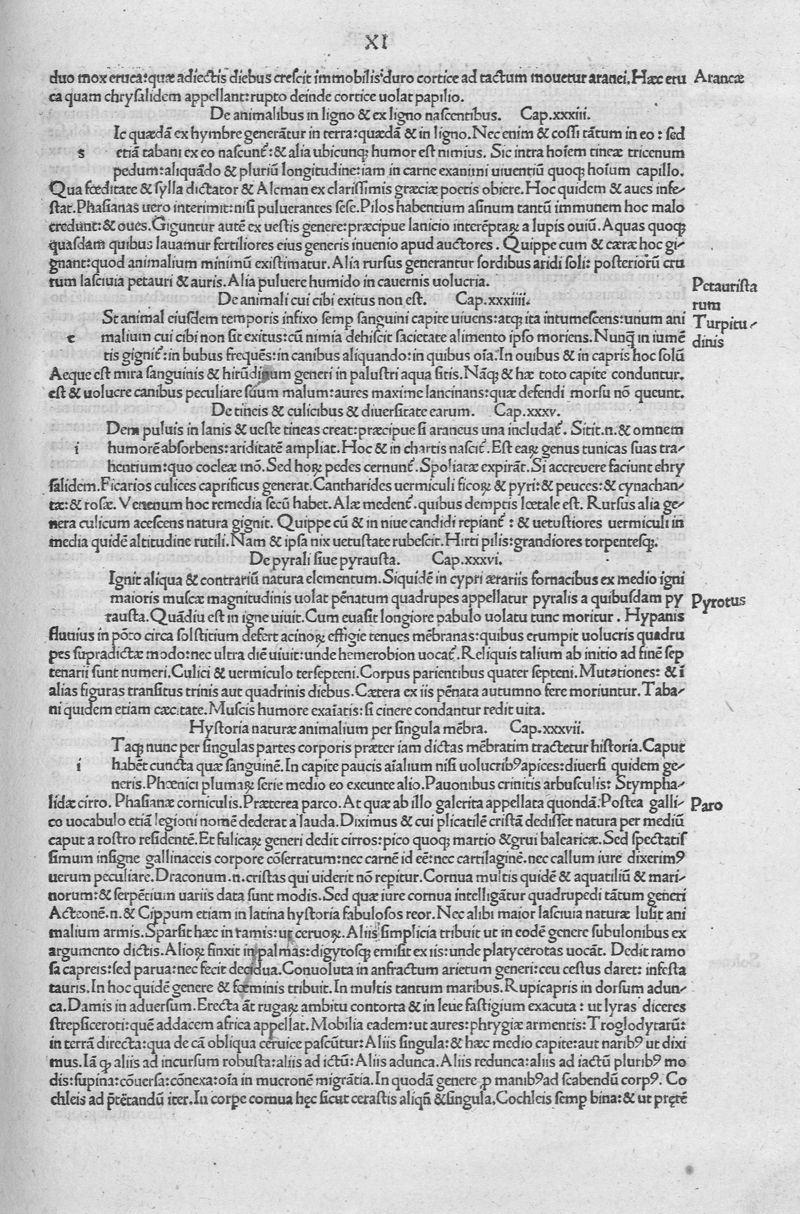 XI
duo mox eruca:quæ adiectis diebus crescit immobilis'duro cortice ad tactum mouetur aranei. Hæc eru Araneæ
ca quam chrysalidem appellant:rupto deinde cortice uolat papilio.
De animalibus in ligno & ex ligno nascentibus. Cap.xxxiii.
Ic quædã ex hymbre generãtur in terra:quædã & in ligno. Nec enim & cossi tãtum in eo : sed
s etiã tabani ex eo nascunť: & alia ubicunqꝫ humor est nimius. Sic intra hoĩem tineæ tricenum
pedum:aliquãdo & pluriũ longitudine:iam in carne exanimi uiuentiũ quoqꝫ hoĩum capillo.
Qua fœditate & sylla dictator & Alcman ex clarissimis græciæ poetis obiere. Hoc quidem & aues infe⸗
stat. Phasianas uero interimit:nisi puluerantes sese. Pilos habentium asinum tantũ immunem hoc malo
credunt:& oues. Giguntur autẽ ex uestis genere:præcipue lanicio interẽptaꝝ a lupis ouiũ. Aquas quoqꝫ
quasdam quibus lauamur fertiliores eius generis inuenio apud auctores . Quippe cum & cæræ hoc gi⸗
gnant:quod animalium minimũ existimatur. Alia rursus generantur sordibus aridi soli: posteriorũ cru
rum lasciuia petauri & auris. Alia puluere humido in cauernis uolucria. Petaurista
De animali cui cibi exitus non est. Cap.xxxiiii. rum
St animal eiusdem temporis infixo semp sanguini capite uiuens:atqꝫ ita intumescens:unum ani Turpitu⸗
e malium cui cibi non sit exitus:cũ nimia dehiscit sacietate alimento ipso moriens. Nunꝙ in iumẽ dinis
tis gigniť: in bubus frequẽs: in canibus aliquando: in quibus oĩa. In ouibus & in capris hoc solũ
Aeque est mira sanguinis & hirũdinum generi in palustri aqua sitis. Nãqꝫ & hæ toto capite conduntur.
est & uolucre canibus peculiare suum malum:aures maxime lancinans:quæ defendi morsu nõ queunt.
De tineis & culicibus & diuersitate earum. Cap.xxxv.
Dem puluis in lanis & ueste tineas creat:præcipue si araneus una includať. Sitit.n.& omnem
i humorẽ absorbens:ariditatẽ ampliat. Hoc & in chartis nasciť. Est eaꝝ genus tunicas suas tra⸗
hentium:quo cocleæ mõ. Sed hoꝝ pedes cernunť. Spoliatæ expirãt. Si accreuere faciunt chry
salidem. Ficarios culices caprificus generat. Cantharides uermiculi ficoꝝ & pyri:& peuces: & cynachan⸗
tæ:& rosæ. Venenum hoc remedia secũ habet. Alæ medenť.quibus demptis lœtale est. Rursus alia ge⸗
nera culicum acescens natura gignit. Quippe cũ & in niue candidi repianť : & uetustiores uermiculi in
media quidẽ altitudine rutili. Nam & ipsa nix uetustate rubescit. Hirti pilis:grandiores torpentesqꝫ.
De pyrali siue pyrausta. Cap.xxxvi.
Ignit aliqua & contrariũ natura elementum. Siquidẽ in cypri ærariis fornacibus ex medio igni
maioris muscæ magnitudinis uolat pẽnatum quadrupes appellatur pyralis a quibusdam py Pyrotus
rausta. Quãdiu est in igne uiuit. Cum euasit longiore pabulo uolatu tunc moritur . Hypanis
fluuius in põto circa solstitium defert acinoꝝ effigie tenues mẽbranas:quibus erumpit uolucris quadru
pes supradictæ modo:nec ultra diẽ uiuit:unde hemerobion uocať. Reliquis talium ab initio ad finẽ sep
tenarii sunt numeri. Culici & uermiculo tersepteni. Corpus parientibus quater septeni. Mutationes: & ĩ
alias figuras transitus trinis aut quadrinis diebus. Cætera ex iis pẽnata autumno fere moriuntur. Taba⸗
ni quidem etiam cæcitate. Muscis humore exaĩatis: si cinere condantur redit uita.
Hystoria naturæ animalium per singula mẽbra. Cap.xxxvii.
Taqꝫ nunc per singulas partes corporis præter iam dictas mẽbratim tractetur historia. Caput
i habẽt cuncta quæ sanguinẽ. In capite paucis aĩalium nisi uolucribꝰapices:diuersi quidem ge⸗
neris. Phœnici plumaꝝ serie medio eo exeunte alio. Pauonibus crinitis arbusculis: Stympha⸗
lidæ cirro. Phasianæ corniculis. Præterea parco. At quæ ab illo galerita appellata quondã. Postea galli⸗ Paro
co uocabulo etiã legioni nomẽ dederat alauda. Diximus & cui plicatilẽ cristã dedisset natura per mediũ
caput a rostro residentẽ. Et fulicaꝝ generi dedit cirros:pico quoqꝫ martio &grui balearicæ. Sed spectatis
simum insigne gallinaceis corpore cõserratum:nec carnẽ id eẽ:nec cartilaginẽ.nec callum iure dixerimꝰ
uerum peculiare. Draconum .n.cristas qui uiderit nõ repitur. Cornua multis quidẽ & aquatiliũ & mari⸗
norum:& serpẽtium uariis data sunt modis. Sed quæ iure cornua intelligãtur quadrupedi tãtum generi
Acteonẽ.n.& Cippum etiam in latina hystoria fabulosos reor. Nec alibi maior lasciuia naturæ lusit ani
malium armis. Sparsit hæc in ramis:ut ceruoꝝ. Aliis simplicia tribuit ut in eodẽ genere subulonibus ex
argumento dictis. Alioꝝ finxit in palmas:digytosqꝫ emisit ex iis:unde platycerotas uocãt. Dedit ramo
sa capreis:sed parua:nec fecit decidua. Conuoluta in anfractum arietum generi:ceu cestus daret: infesta
tauris. In hoc quidẽ genere & fœminis tribuit. In multis tantum maribus. Rupicapris in dorsum adun⸗
ca. Damis in aduersum. Erecta ãt rugaꝝ ambitu contorta & in leue fastigium exacuta : ut lyras diceres
strepsiceroti:quẽ addacem africa appellat. Mobilia eadem:ut aures:phrygiæ armentis: Troglodytarũ:
in terrã directa:qua de cã obliqua ceruice pascũtur: Aliis singula: & hæc medio capite:aut naribꝰ ut dixi
mus. Iã ꝙ aliis ad incursum robusta:aliis ad ictũ: Aliis adunca. Aliis redunca:aliis ad iactũ pluribꝰ mo
dis:supina:cõuersa:cõnexa:oĩa in mucronẽ migrãtia. In quodã genere ꝑ manibꝰad scabendũ corpꝰ. Co
chleis ad p̃tẽtandũ iter. In corpe cornua hęc sicut cerastis aliqñ &singula. Cochleis semp bina:& ut pręte